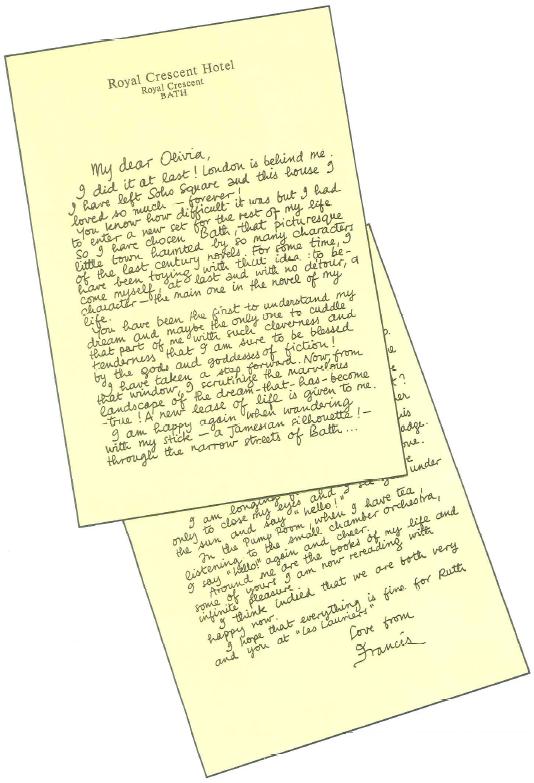 Royal Crescent Hotel
Royal Crescent
BATH
My dear Olivia,
I did it at last! London is behind me.
I have left Soho Square and this house I
loved so much – forever!
You know how difficult it was but I had
to enter a new set for the rest of my life
So I have chosen Bath, that picturesque
little town haunted by so many characters
of the last century novels. For some time, I
have been toying with that idea: to be-
come myself, at last and with no detour, a
character – the main one in the novel of my
life.
You have been the first to understand my
dream and maybe the only one to cuddle
that part of me with such cleverness and
tenderness that I am sure to be blessed
by the gods and goddesses of fiction!
I have taken a step forward. Now, from
that window, I scrutinise the marvellous
landscape of the dream-that-has-become
-true! A new lease of life is given to me.
I am happy again when wandering
with my stick – a Jamesian silhouette! –
through the narrow streets of Bath...
I am longing
only to close my eyes and I see under
the sun and say "hello!"
In the Pump Room, when I have tea,
listening to the small chamber orchestra,
I say "Hello!" again and cheer.
Around me are the books of my life and
some of yours I am now rereading with
infinite pleasure.
I think indeed that we are both very
happy now.
I hope that everything is fine for Ruth
and you at "Les Lauriers"
Love from
Francis